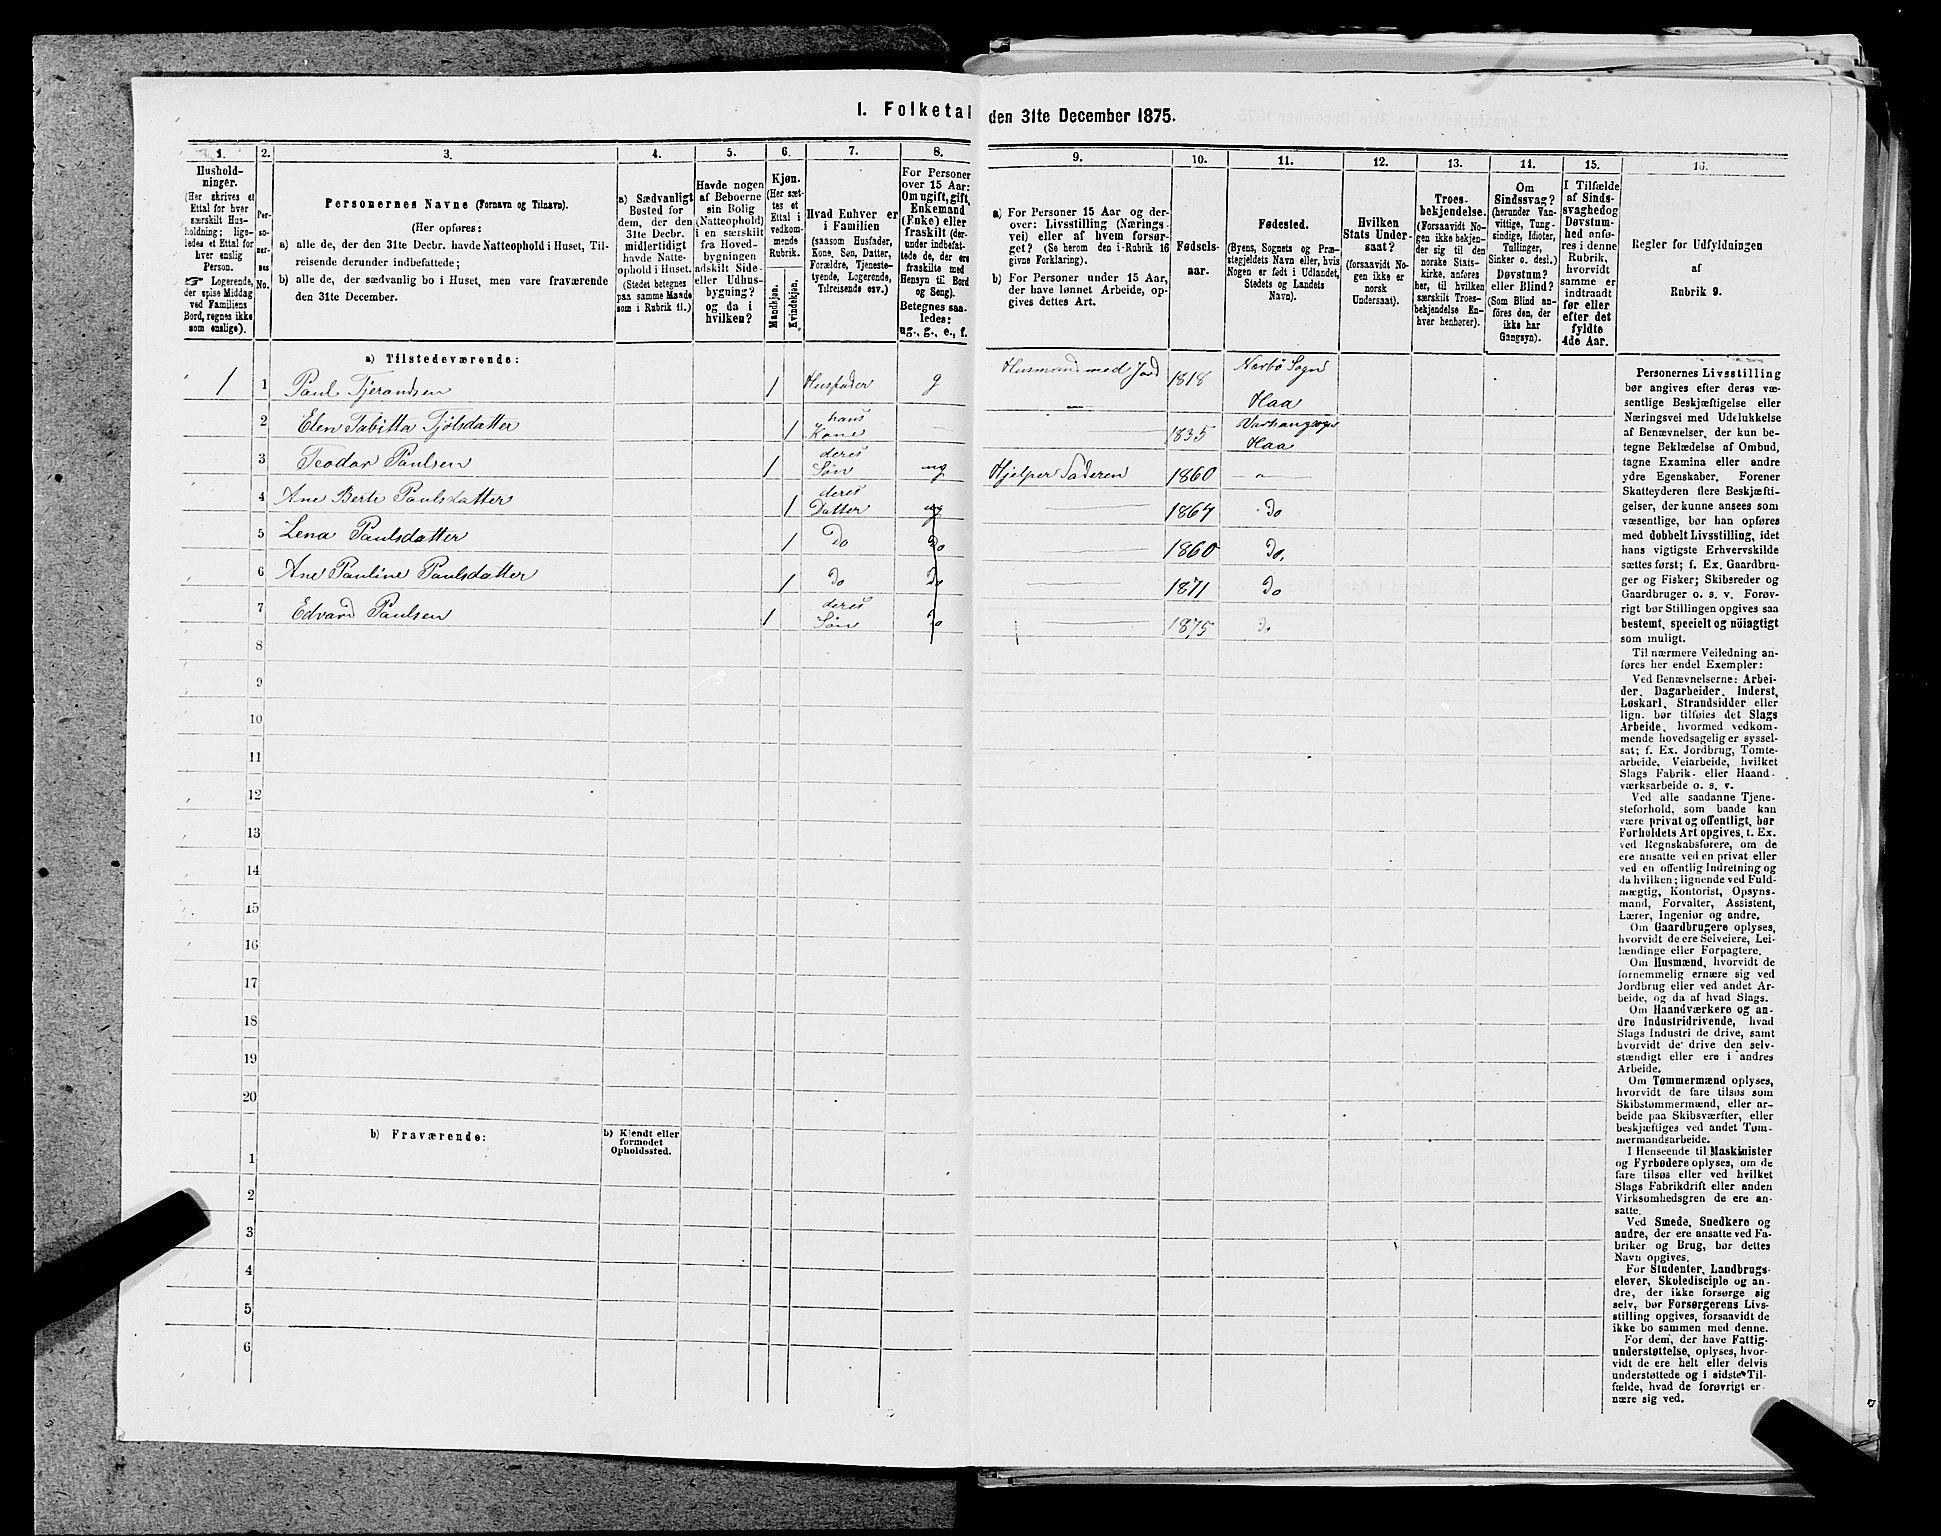 1. Folketal den 31te December 1875.
1. 2. 3. 4. 5. 6. 7. 8. 9. 10. 11. 12. 13. 11. 15. 16.
Hushold-
ninger.
(Her skrives et
Ettal for hver
særskilt Hus-
holdning; lige-
ledes et Ettal for
hver enslig
Person.
☞ Logerende,
der spise Middag
ved Familiens
Bord, regnes ikke
som enslige).
Per-
so-
ner-
nes
No.
Personernes Navne (Fornavn og Tilnavn).
(Her opføres:
a) alle de, der den 31te Decbr. havde Natteophold i Huset, Til-
reisende derunder indbefattede;
b) alle de, der sædvanlig bo i Huset, men vare fraværende
den 31te December.
a) Sædvanligt
Bosted for
dem, der den
31te Decbr.
midlertidigt
havde Natte-
ophold i Huset.
(Stedet betegnes
paa samme Maade
som i Rubrik 11.)
Havde nogen
af Beboerne
sin Bolig
(Natteophold)
i en særskilt
fra Hoved-
bygningen
adskilt Side-
eller Udhus-
bygning?
og da i
hvilken?
Kjøn.
(Her sæt-
tes et
Ettal i
vedkom-
mende
Rubrik.
Mandkjøn.
Kvindekjøn.
Hvad Enhver er
i Familien
(saasom Husfader,
Kone, Søn, Datter,
Forældre, Tjeneste-
tyende, Logerende,
Tilreisende osv.)
For Personer
over 15 Aar:
Om ugift, gift,
Enkemand
(Enke) eller
fraskilt (der-
under indbefat-
tede de, der ere
fraskilte med
Hensyn til Bord
og Seng).
Betegnes saa-
ledes:
ug., g., e., f.
a) For Personer 15 Aar og der-
over: Livsstilling (Nærings-
vei) eller af hvem forsør-
get? (Se herom den i Rubrik 16
givne Forklaring).
b) For Personer under 15 Aar,
der have lønnet Arbeide, op-
gives dettes Art.
Fødsels-
aar.
Fødested.
(Byens, Sognets og Præ-
stegjeldets Navn eller, hvis
Nogen er født i Udlandet,
Stedets og Landets
Navn).
Hvilken
Stats Under-
saat?
(forsaavidt No-
gen ikke er
norsk
Undersaat).
Troes-
bekjendelse.
(Forsaavidt No-
gen ikke bekjen-
der sig til den
norske Stats-
kirke, anføres
her, til hvilken
særskilt Troes-
bekjendelse En-
hver henhører).
Om
Sindssvag?
(herunder Van-
vittige, Tung-
sindige, Idioter,
Tullinger,
Sinker o. desl.)
Døvstum?
eller Blind?
(Som Blind an-
føres den, der
ikke har
Gangsyn).
I Tilfælde
af Sinds-
svaghed og
Døvstum-
hed anfø-
res i denne
Rubrik,
hvorvidt
samme er
indtraadt
før eller
efter det
fyldte
4de Aar.
Regler for Udfyldningen
af
Rubrik 9.
a) Tilstedeværende:
1 1 Paul Tjerandsen 1 Husfader g Husmand med Jord 1818 Nærbø Sogn Haa
2 Elen Tabitta Tjølsdatter 1 hans Kone — 1835 Haa
3 Teodor Paulsen 1 deres Søn ug Hjelper Faderen 1860 — " —
4 Ane Berte Paulsdatter 1 deres Datter ug — 1867 Do
5 Lena Paulsdatter 1 Do Do — 1860 Do.
6 Ane Pauline Paulsdatter 1 Do Do — 1871 Do
7 Edvard Paulsen 1 deres Søn Do — 1875 Do
8
9
10
11
12
13
14
15
16
17
18
19
20
b) Fraværende:
b) Kjendt eller
formodet
Opholdssted.
1
2
3
4
5
6
Personernes Livsstilling
bør angives efter deres væ-
sentlige Beskjæftigelse eller
Næringsvei med Udelukkelse
af Benævnelser, der kun be-
tegne Beklædelse af Ombud,
tagne Examina eller andre
ydre Egenskaber. Forener
Skatteyderen flere Beskjæfti-
gelser, der kunne ansees som
væsentlige, bør han opføres
med dobbelt Livsstilling, idet
hans vigtigste Erhvervskilde
sættes først; f. Ex. Gaardbru-
ger og Fisker; Skibsreder og
Gaardbruger o. s. v. Forøv-
rigt bør Stillingen opgives saa
bestemt, specielt og nöiagtigt
som muligt.
Til nærmere Veiledning an-
føres her endel Exempler:
Ved Benævnelserne: Arbei-
der, Dagarbeider, Inderst,
Løskarl, Strandsidder eller
lign. bør tilføies det Slags
Arbeide, hvormed vedkom-
mende hovedsagelig er syssel-
sat; f. Ex. Jordbrug, Tomte-
arbeide, Veiarbeide, hvilket
Slags Fabrik- eller Haand-
værksarbeide o. s. v.
Ved alle saadanne Tjene-
steforhold, som baade kan
være privat og offentligt, bør
Forholdets Art opgives, t. Ex.
ved Regnskabsførere, om de
ere ansatte ved en privat eller
ved en offentlig Indretning og
da hvilken; lignende ved Fuld-
mægtig, Kontorist, Opsyns-
mand, Forvalter, Assistent,
Lærer, Ingeniør og andre.
Om Gaardbrugere oplyses,
hvorvidt de ere Selveiere, Lei-
lændinge eller Forpagtere.
Om Husmænd, hvorvidt de
fornemmelig ernære sig ved
Jordbrug eller ved andet Ar-
beide, og da af hvad Slags.
Om Haandværkere og an-
dre Industridrivende, hvad
Slags Industri de drive, samt
hvorvidt de drive den selv-
stændigt eller ere i andres
Arbeide.
Om Tømmermænd oplyses,
hvorvidt de fare tilsøs som
Skibstømmermænd, eller ar-
beide paa Skibsværfter, eller
beskjæftiges ved andet Tøm-
mermandsarbeide.
I Henseende til Maskinister
og Fyrbødere oplyses, om de
fare tilsøs eller ved hvilket
Slags Fabrikdrift eller anden
Virksomhedsgren de ere an-
satte.
Ved Smede, Snedkere og
andre, der ere ansatte ved Fa-
briker og Brug, bør dettes
Navn opgives.
For Studenter, Landbrugs-
elever, Skoledisciple og an-
dre, der ikke forsørge sig
selv, bør Forsørgerens Livs-
stilling opgives, forsaavidt de
ikke bo sammen med denne.
For dem, der have Fattig-
understøttelse, oplyses, hvor-
vidt de ere helt eller delvis
understøttede og i sidste Til-
fælde, hvad de forøvrigt er-
nære sig ved.